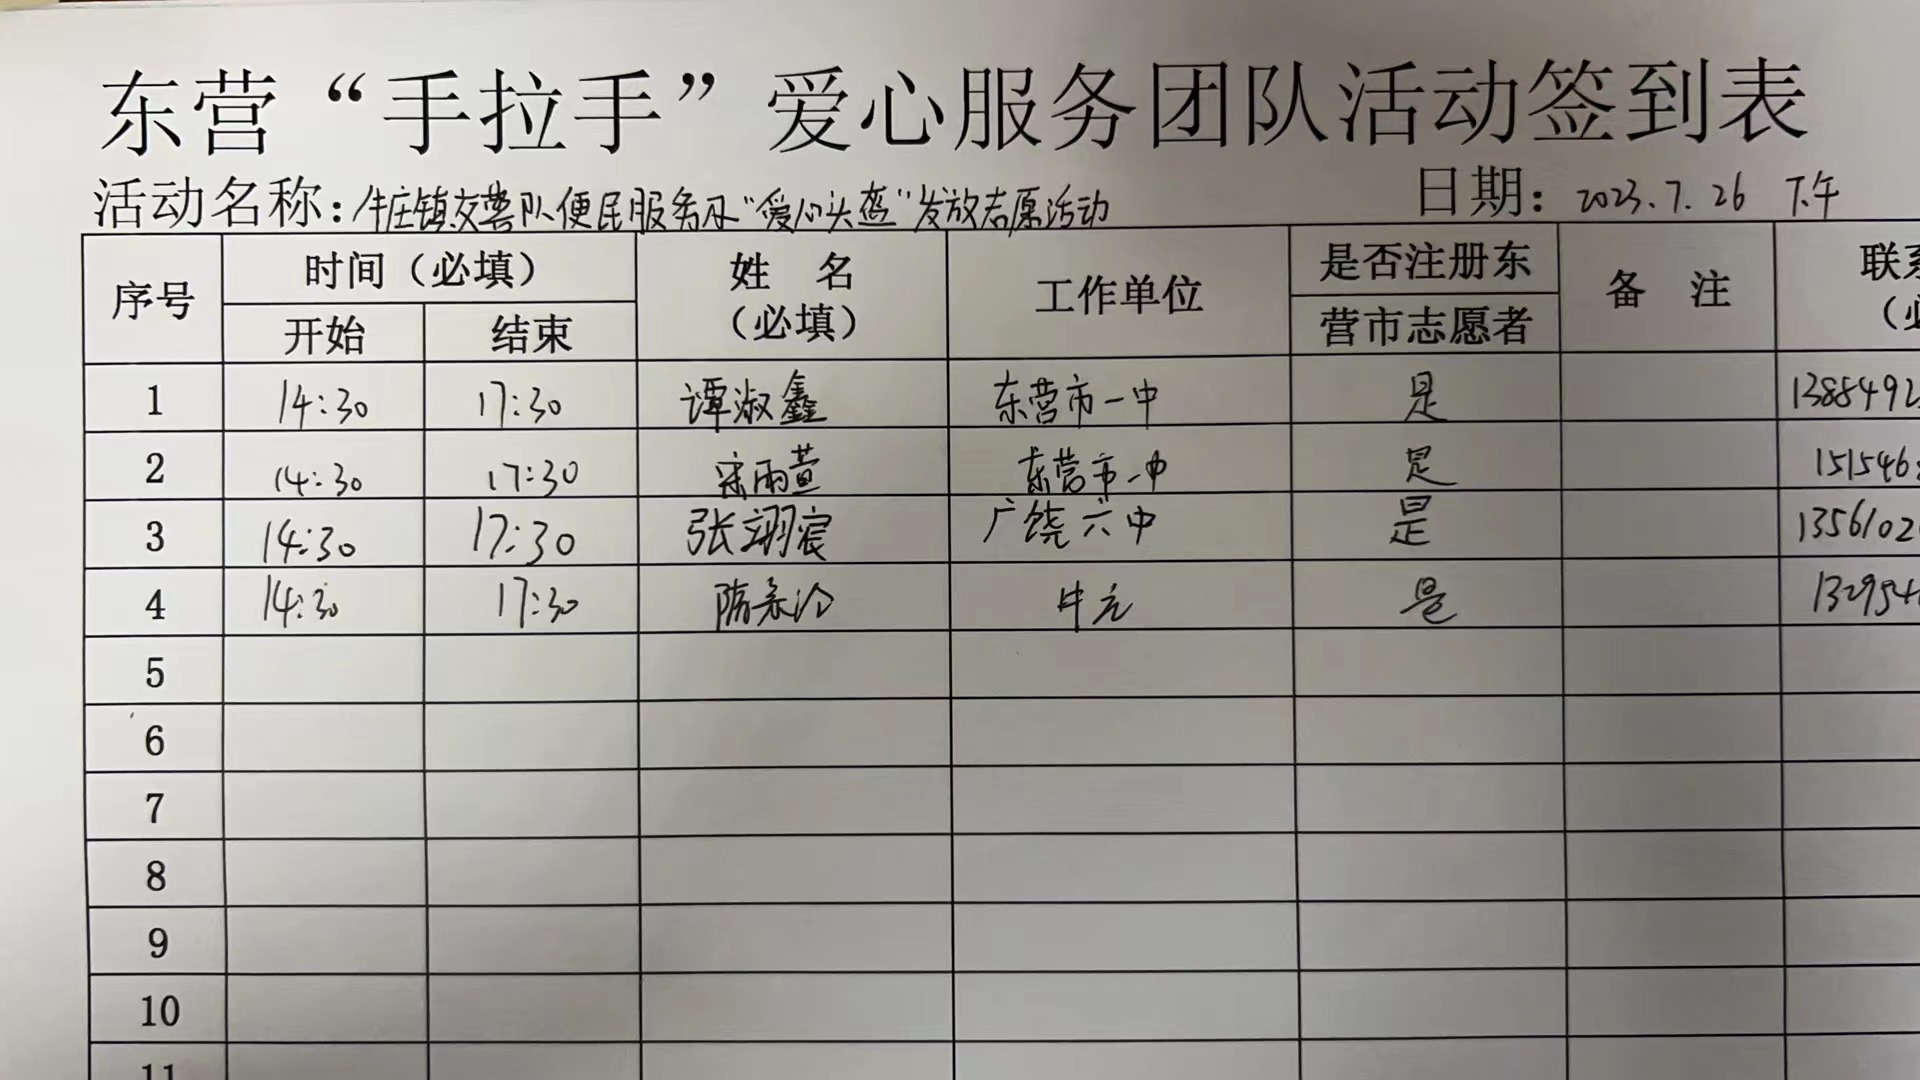 东营“手拉手”爱心服务团队活动签到表
活动名称：牛庄镇交警队便民服务及“爱心头盔”发放志愿活动 日期：2023.7.26 下午
序号 时间（必填） 姓 名 工作单位 是否注册东 备 注 联系
开始 结束 （必填） 营市志愿者 （必
1 14:30 17:30 谭淑鑫 东营市一中 是 1385492
2 14:30 17:30 宋雨萱 东营市一中 是 1515468
3 14:30 17:30 张翊宸 广饶六中 是 1356102
4 14:30 17:30 隋 是 132954
5
6
7
8
9
10
11